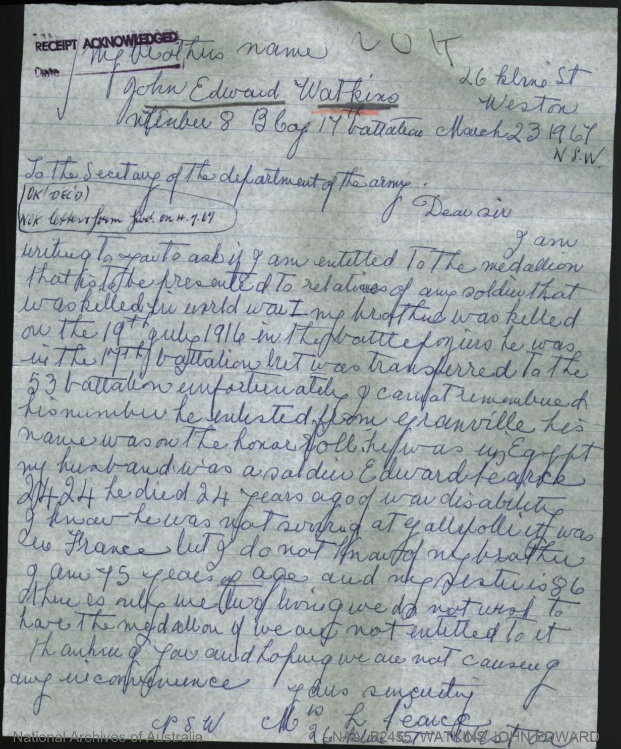 RECEIPT ACKNOWLEDGED
Date
my brothers name
John Edward Watkins
26 Kline St
Weston
Number 8 B Coy 17 battalion March 23 1967
N.S.W.
To the Secetary of the department of the army.
(OK (DEC'D)
NOK letters form fwd. on 4.7.67
Dear sir
I am
writing to you to ask if I am entitled to the medallion
that is to be presented to relatives of any soldier that
was killed in world war I my brother was killed
on the 19th July 1916 in the battle he was
in the 17th battalion but was transferred to the
53 battalion unfortunately I cannot remember
his number he enlisted from Granville his
name was on the honor roll. he was in Egypt
my husband was a soldier Edward Pearce
2424 he died 24 years ago of war disability
I know he was not serving at gallipolli it was
in France but I do not know of my brother
I am 75 years of age and my sister is 86
there is only we two living we do not want to
have the medallion if we are not entitled to it
thanking you and hoping we are not causing
any inconvenience
yours sincerely
P S W Mrs L Pearce
26 Kline St Weston
National Archives of Australia
NAA: B2455, WATKINS JOHN EDWARD